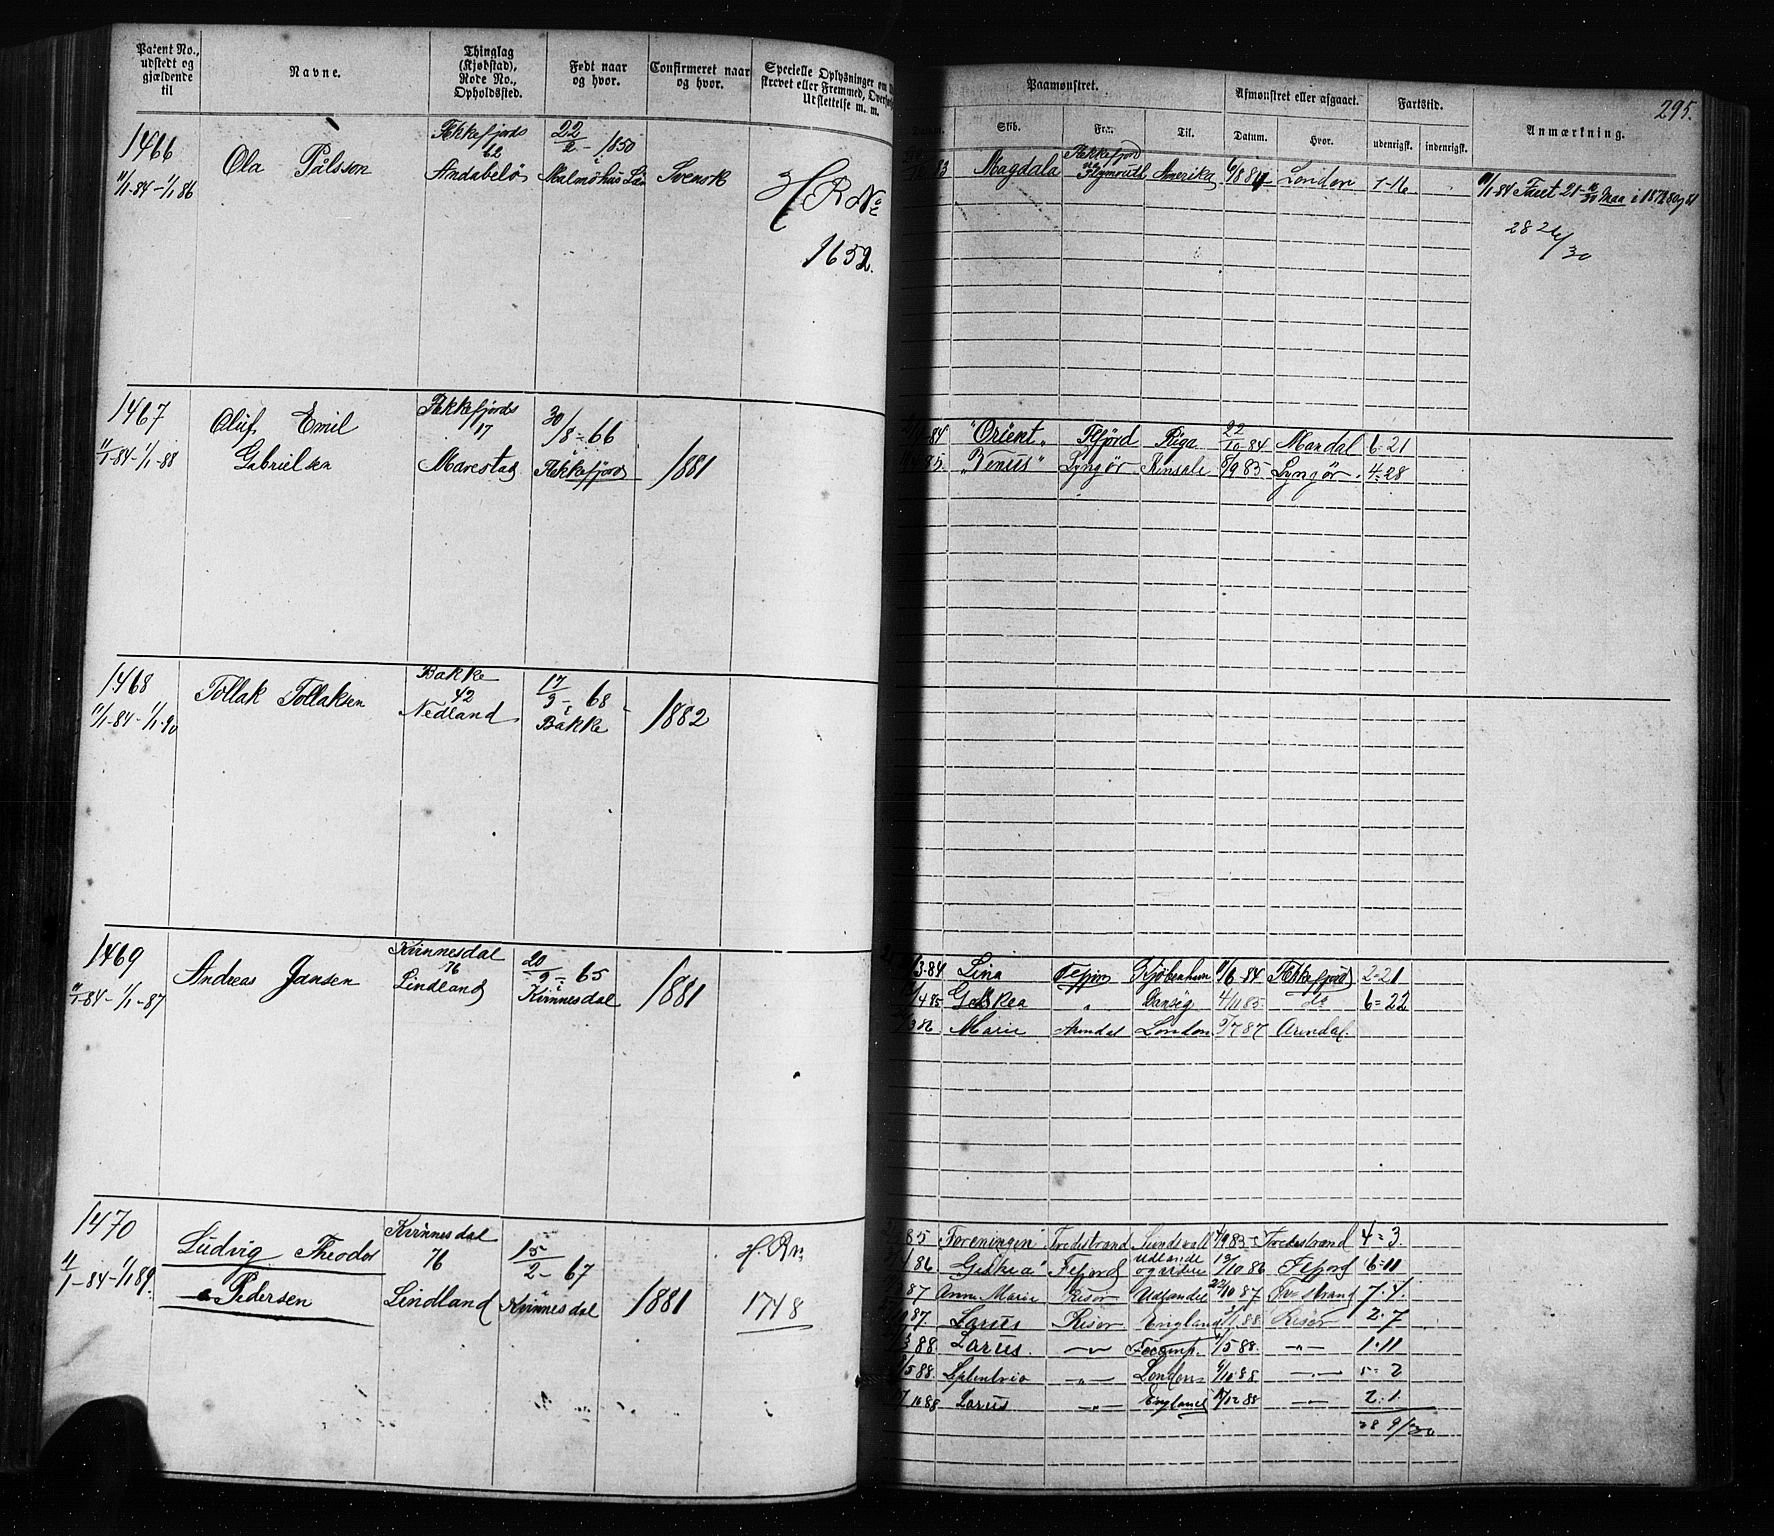 Patent No., udstedt og gjældende til
Navne.
Thinglag (Kjøbstad), Rode No., Opholdssted.
Født naar og hvor.
Confirmeret naar og hvor.
Specielle Oplysninger om
strevet eller Fremmed, Overf
Udslettelse m. m.
Paamønstret.
Skib.
Fra.
Til.
Afmønstret eller afgaaet.
Datum.
Hvor.
Fartstid.
udenrigsk.
indenrigsk.
Anmærkning.
295.
1466
11/1-84-1/1 86
Ola Pålsson
Flekkefjords
62
Andabelö
22/2-1850
i
Malmöhus Län
Svensk
H R No
1652.
Magdala
Flekkefjord
Plymouth
Amerika
6/8 84
London
7-16
11/1-84
28 26/30
1467
11/1-84-1/1-88
Oluf Emil
Gabrielsen
Flekkefjords
17
Marestad
30/8-66
Flekkefjord
1881
"Orient"
Fefjord
Riga
22/10-84
Mandal
6-21
"Venus"
Lyngör
Kinsale
8/9 85
Lyngör
4-28
1468
11/1-84-1/1-90
Tollak Tollaksen
Bakke
42
Nedland
17/3-68
i
Bakke
1882
1469
11/1-84-1/1-87
Andreas Jansen
Kvinnesdal
76
Lindland
20/2-65
i
Kvinnesdal
1881
3-84
Lina
Kjöbenhavn
11/6 84
Flekkefjord
2-21
4 85
Danzig
4/11 85
do
6=22
86
Marie
Arendal
London
5/7 87
Arendal.
1470
11/1-84-1/1 89.
Ludvig Theodor
Pedersen
Kvinnesdal
76
Lindland
15/2-67
i
Kvinnesdal
1881
H. R No
1748
85
Foreningen
Tvedestrand
Sundsvall
4/9 85
Tvedestrand
4=3.
86
Gidkia
Fefjord
Udlandet
10 86
Fefjord
6=11
87
Anna Marie
Risør
Udlandet
22/10 87
7.4.
87.
Larus
Risør
England
1 88
Risør
2.7
88
Larus.
5 88.
-"-
1.11
5 88.
London
10 88
5=2
10 88
Larus
-"-
England
12 88
2.1.
28 9/30